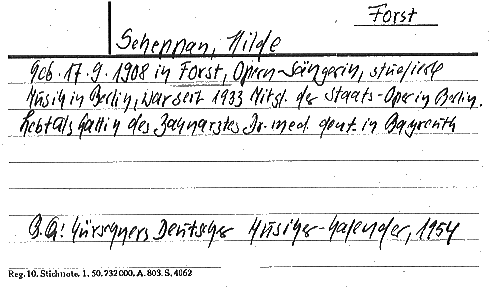 Forst
Scheppan, Hilde
Geb. 17.9.1908 in Forst, Opern-Sängerin, studierte
Musik in Berlin, war seit 1933 Mitgl. der Staats-Oper in Berlin.
Lebt als Gattin des Zahnarztes Dr. med. dent. in Bayreuth
B.A: Kürschners Deutscher Musiker-Kalender, 1954
Reg. 10. Stichnote. 1. 50. 732000. A. 803. S. 4062